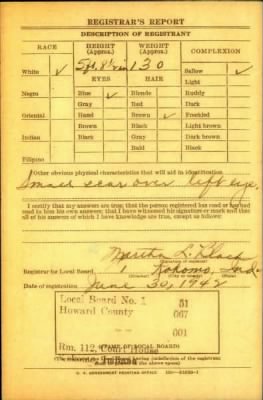 REGISTRAR'S REPORT
DESCRIPTION OF REGISTRANT
RACE HEIGHT (Approx.) WEIGHT (Approx.) COMPLEXION
White ✓ 5 ft. 8½ in 130 Sallow ✓
EYES HAIR Light
Negro Blue ✓ Blonde Ruddy
Gray Red Dark
Oriental Hazel Brown ✓ Freckled
Brown Black Light brown
Indian Black Gray Dark brown
Bald Black
Filipino
Other obvious physical characteristics that will aid in identification
Small scar over left eye.
I certify that my answers are true; that the person registered has read or has had
read to him his own answers; that I have witnessed his signature or mark and that
all of his answers of which I have knowledge are true, except as follows:
Martha L.
(Signature of registrar)
Registrar for Local Board 1 Kokomo, Ind.
(Number) (City or county) (State)
Date of registration June 30, 1942
Local Board No. 1 51
Howard County 067
001
Rm. 112, Court House
(STAMP OF LOCAL BOARD)
U. S. GOVERNMENT PRINTING OFFICE